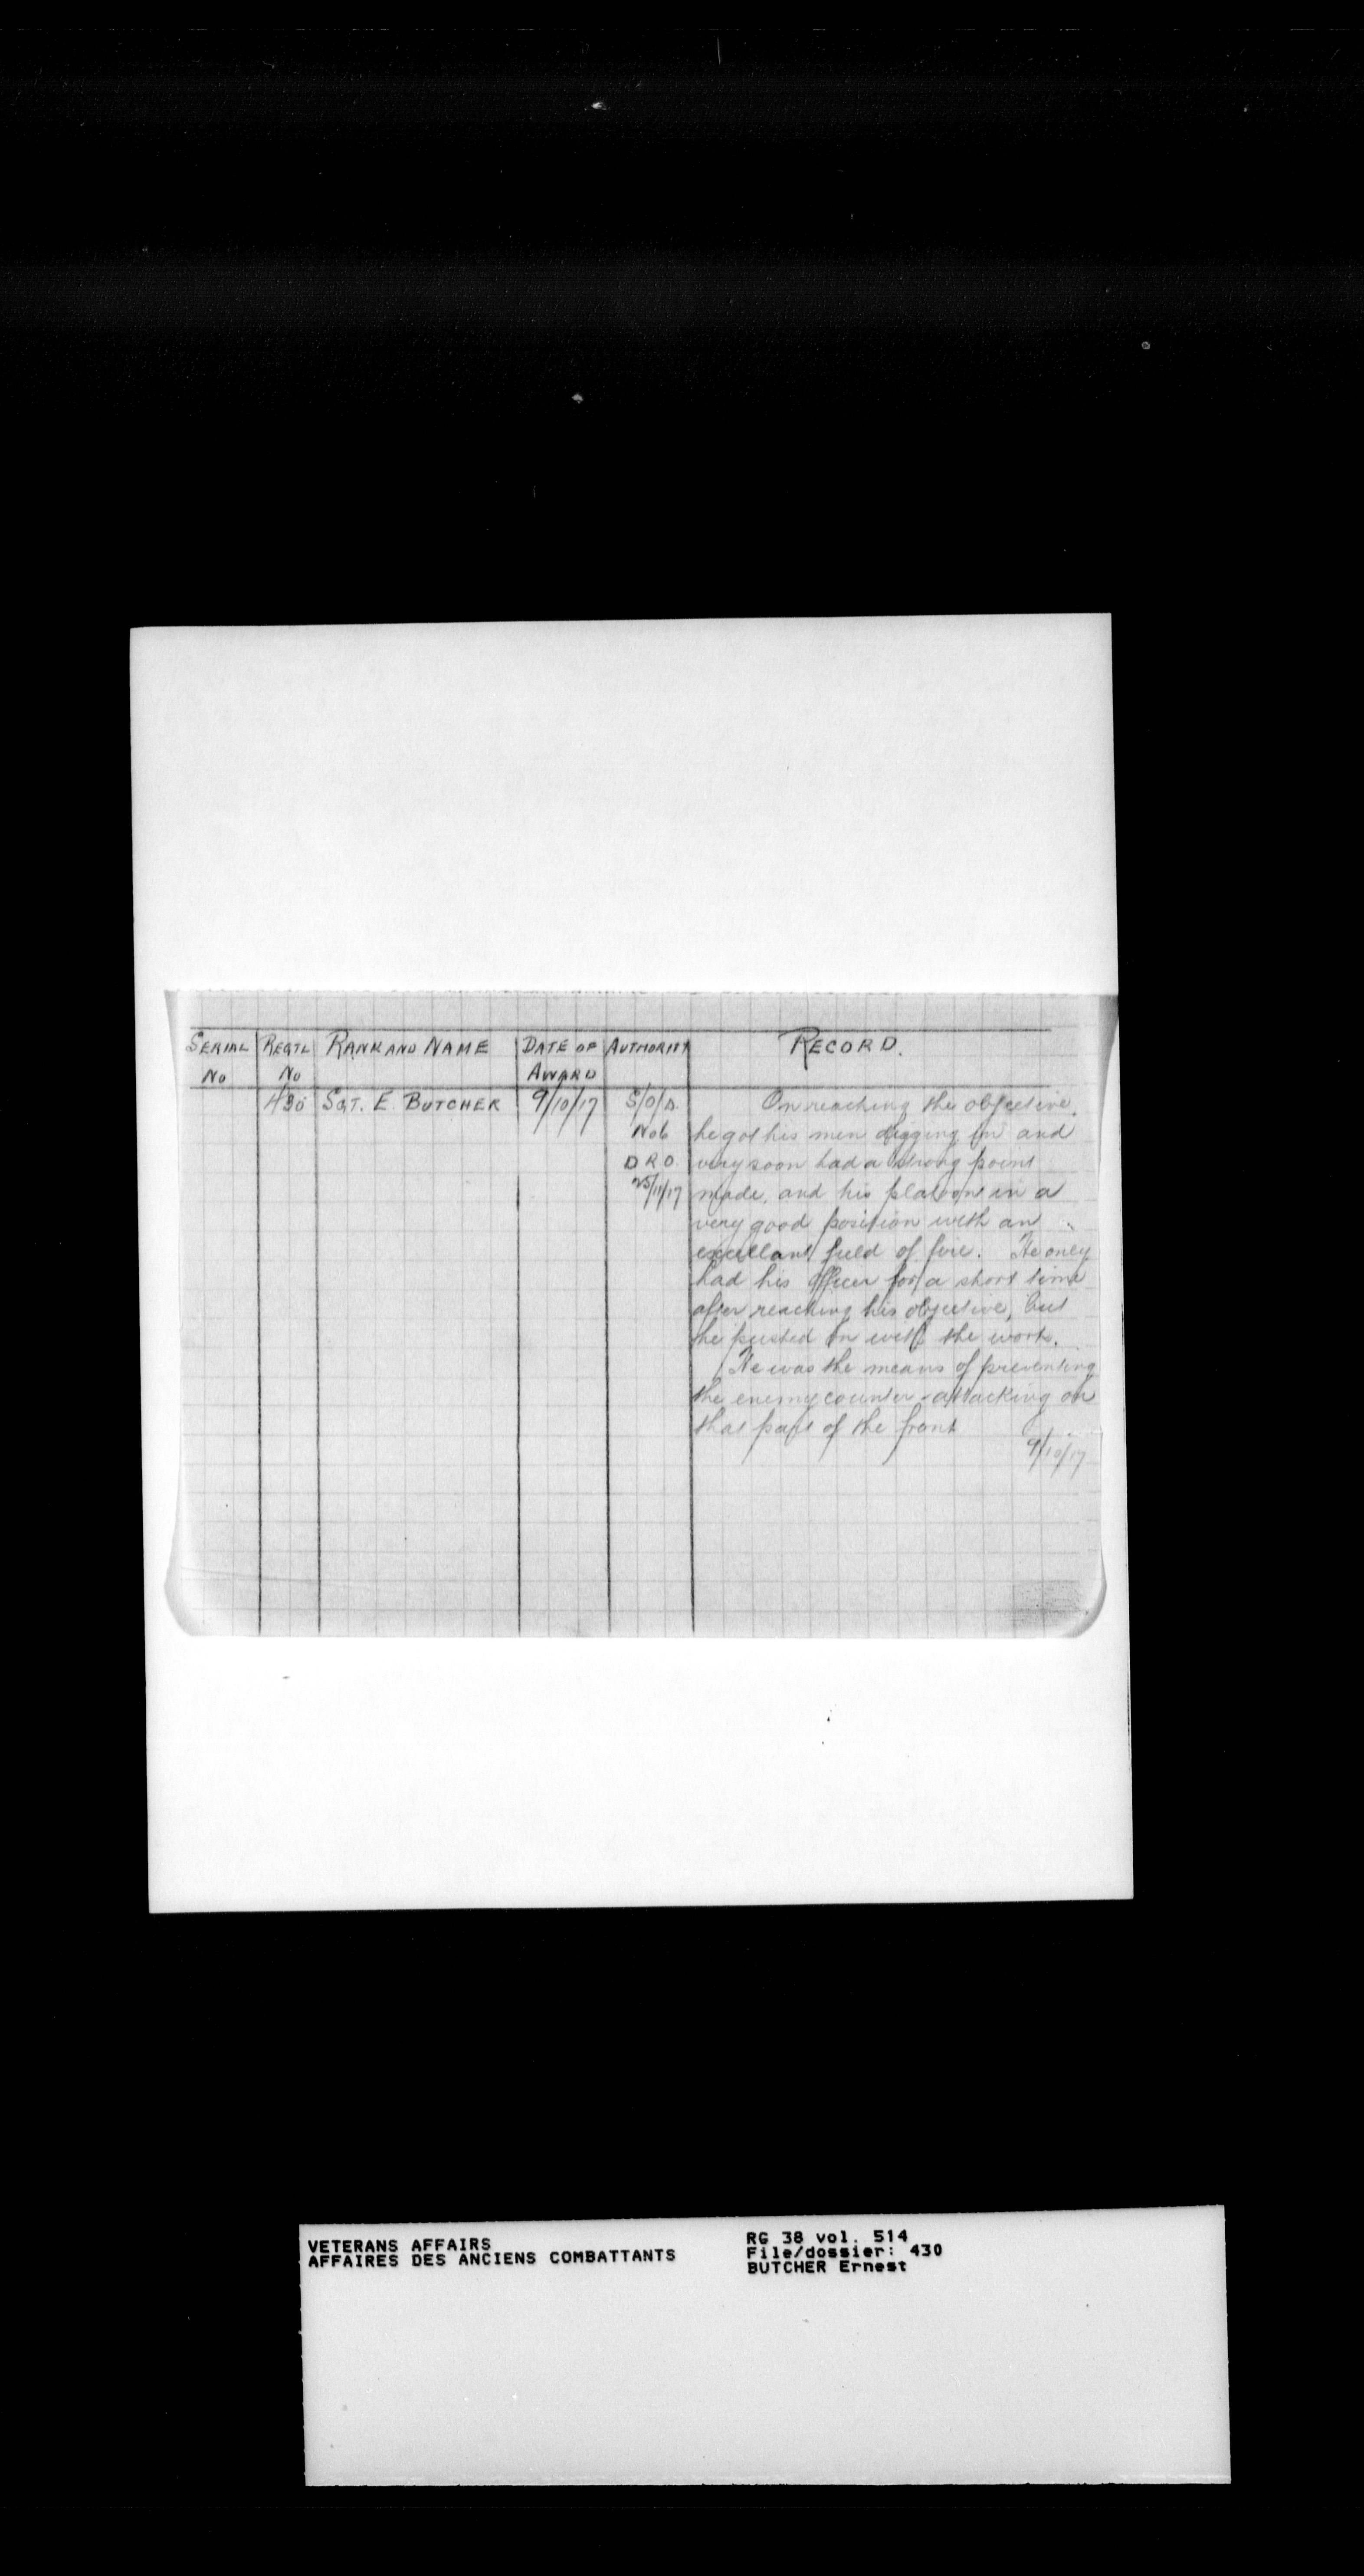 SERIAL No
REGTL No
RANK AND NAME
DATE OF AWARD
AUTHORITY
RECORD.
430
SGT. E. BUTCHER
9/10/17
S/O/D.
No 6
D R O.
25/11/17
On reaching the objective,
he got his men digging in and
very soon had a strong point
made, and his platoon in a
very good position with an
excellant field of fire. He only
had his officer for a short time
after reaching his objective, but
he pushed on with the work.
He was the means of preventing
the enemy counter-attacking on
that part of the front
9/10/17
VETERANS AFFAIRS
AFFAIRES DES ANCIENS COMBATTANTS
RG 38 vol. 514
File/dossier: 430
BUTCHER Ernest